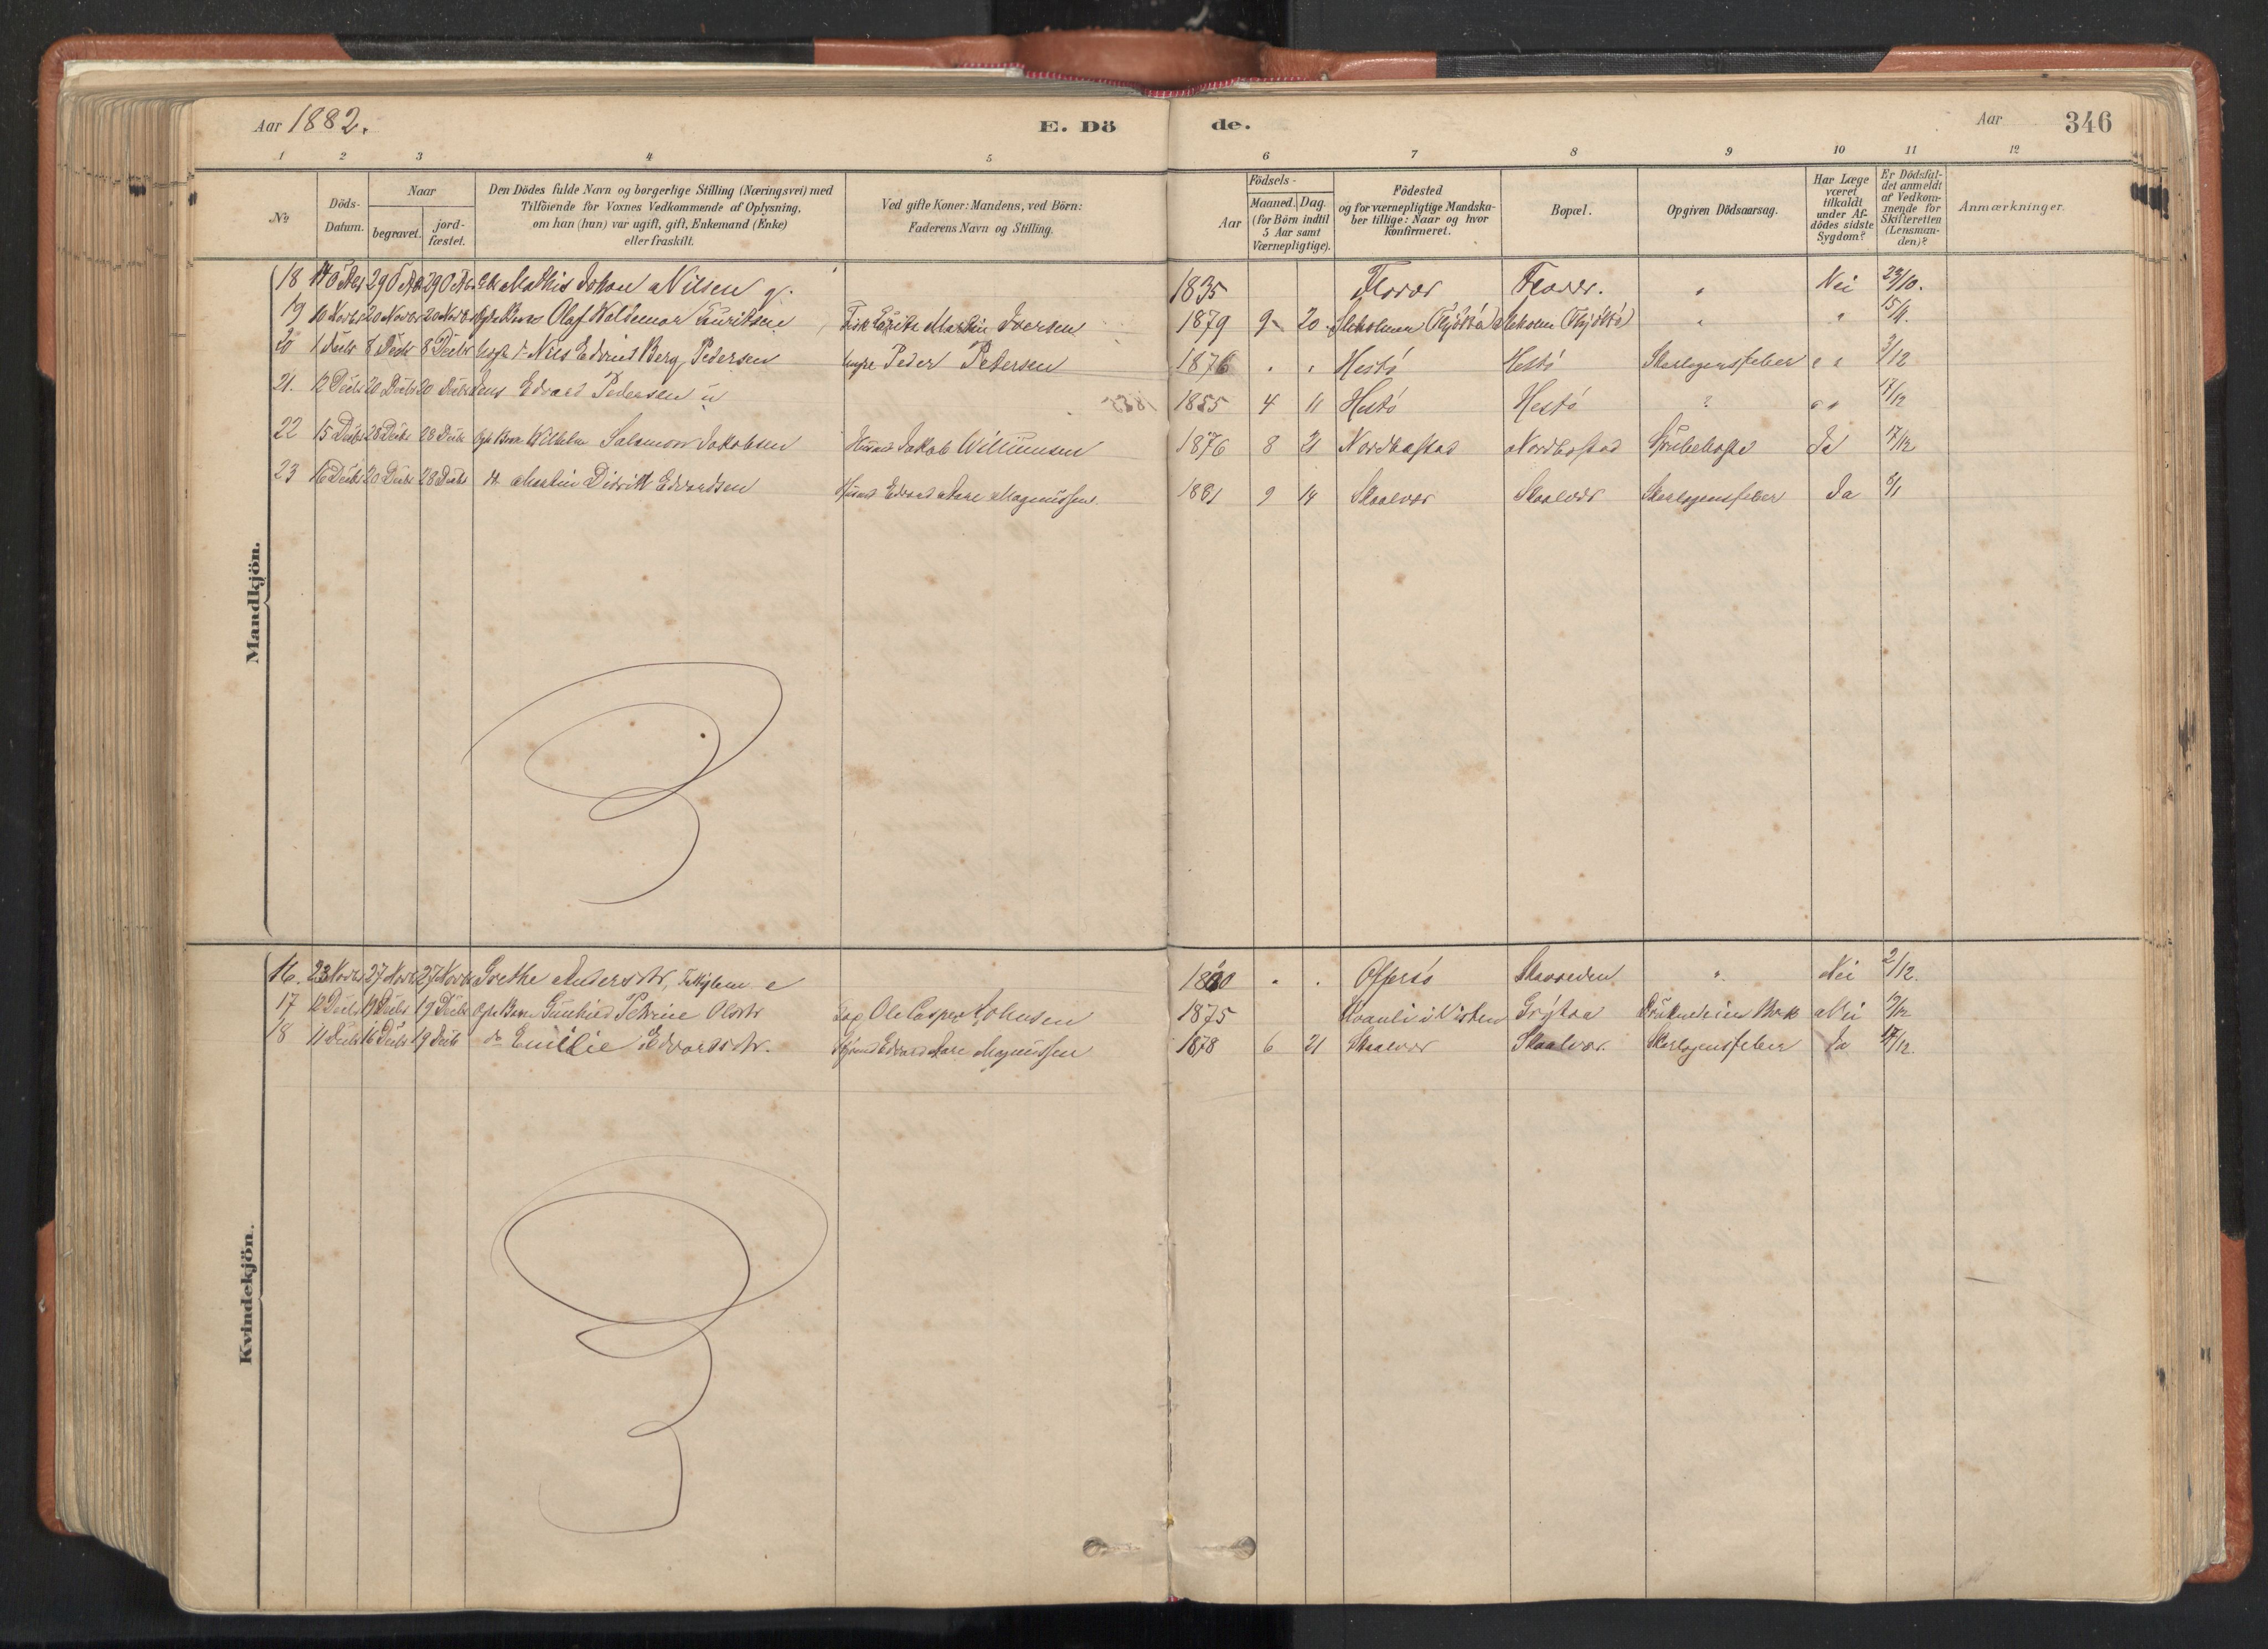 Aar 1882.
E. Dö
de.
Aar
346
1 2 3 4 5 6 7 8 9 10 11 12
No
Döds-Datum.
Naar
begravet.
jord-fæstet.
Den Dödes fulde Navn og borgerlige Stilling (Næringsvei) med
Tilföiende for Voxnes Vedkommende af Oplysning,
om han (hun) var ugift, gift, Enkemand (Enke)
eller fraskilt.
Ved gifte Koner: Mandens, ved Börn:
Faderens Navn og Stilling.
Födsels-
Aar
Maaned. Dag.
(for Börn indtil
5 Aar samt
Værnepligtige).
Födested
og for værnepligtige Mandska-
ber tillige: Naar og hvor
konfirmeret.
Bopæl.
Opgiven Dödsaarsag.
Har Læge
været
tilkaldt
under Af-
dödes sidste
Sygdom?
Er Dödsfal-
det anmeldt
af Vedkom-
mende for
Skifteretten
(Lensman-
den)?
Anmærkninger.
Mandkjön.
18 14 Octbr 29 Octbr 29 Octbr Mathis Johan Nilsen g. 1835 Flovær Flovær. " Nei 23/10.
19 10 Novbr 20 Novbr 20 Novbr Olaf Waldemar Lauritsen Fisk Laurits Martin Iversen 1879 9 20 (Thjöttö) (Thjöttö) " "
20 1 Decbr 8 Decbr 8 Decbr Nils Edvind Berg Pedersen Peder Petersen 1876 " " Hestö Hestö Skarlagensfeber " " 3/12
21. 12 Decbr 20 Decbr 20 Decbr Jens Edvard Pedersen u 1855 4 11 Hestö Hestö ? " " 17/12
22 15 Decbr 28 Decbr 28 Decbr Wilhelm Salamon Jakobsen Husmd Jakob Williumsen 1876 8 21 Nordbostad Nordbostad Strubehoste Ja 17/12
23 16 Decbr 20 Decbr 28 Decbr do Martin Didrik Edvardsen Husmd Edvard Aare Magnussen. 1881 9 14 Skaalvær Skaalvær Skarlagensfeber Ja
Kvindekjön.
16. 23 Novbr 27 Novbr 27 Novbr Grethe Andersdtr, e " . Offersö " Nei 2/12.
17 12 Decbr 19 Decbr 19 Decbr Gunhild Petrine Olsdtr Ole Casper Johnsen 1875 i Visten Grytaa Nei
18 11 Decbr 16 Decbr 19 Decbr do Emilie Edvardsdtr. Husmd Edvard Aare Magnussen 1878 6 21 Skaalvær Skaalvær. Skarlagensfeber Ja 17/12.